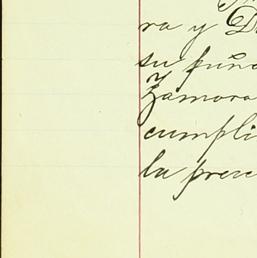 ra y D
su puño
Zamora
cumpli
la prese